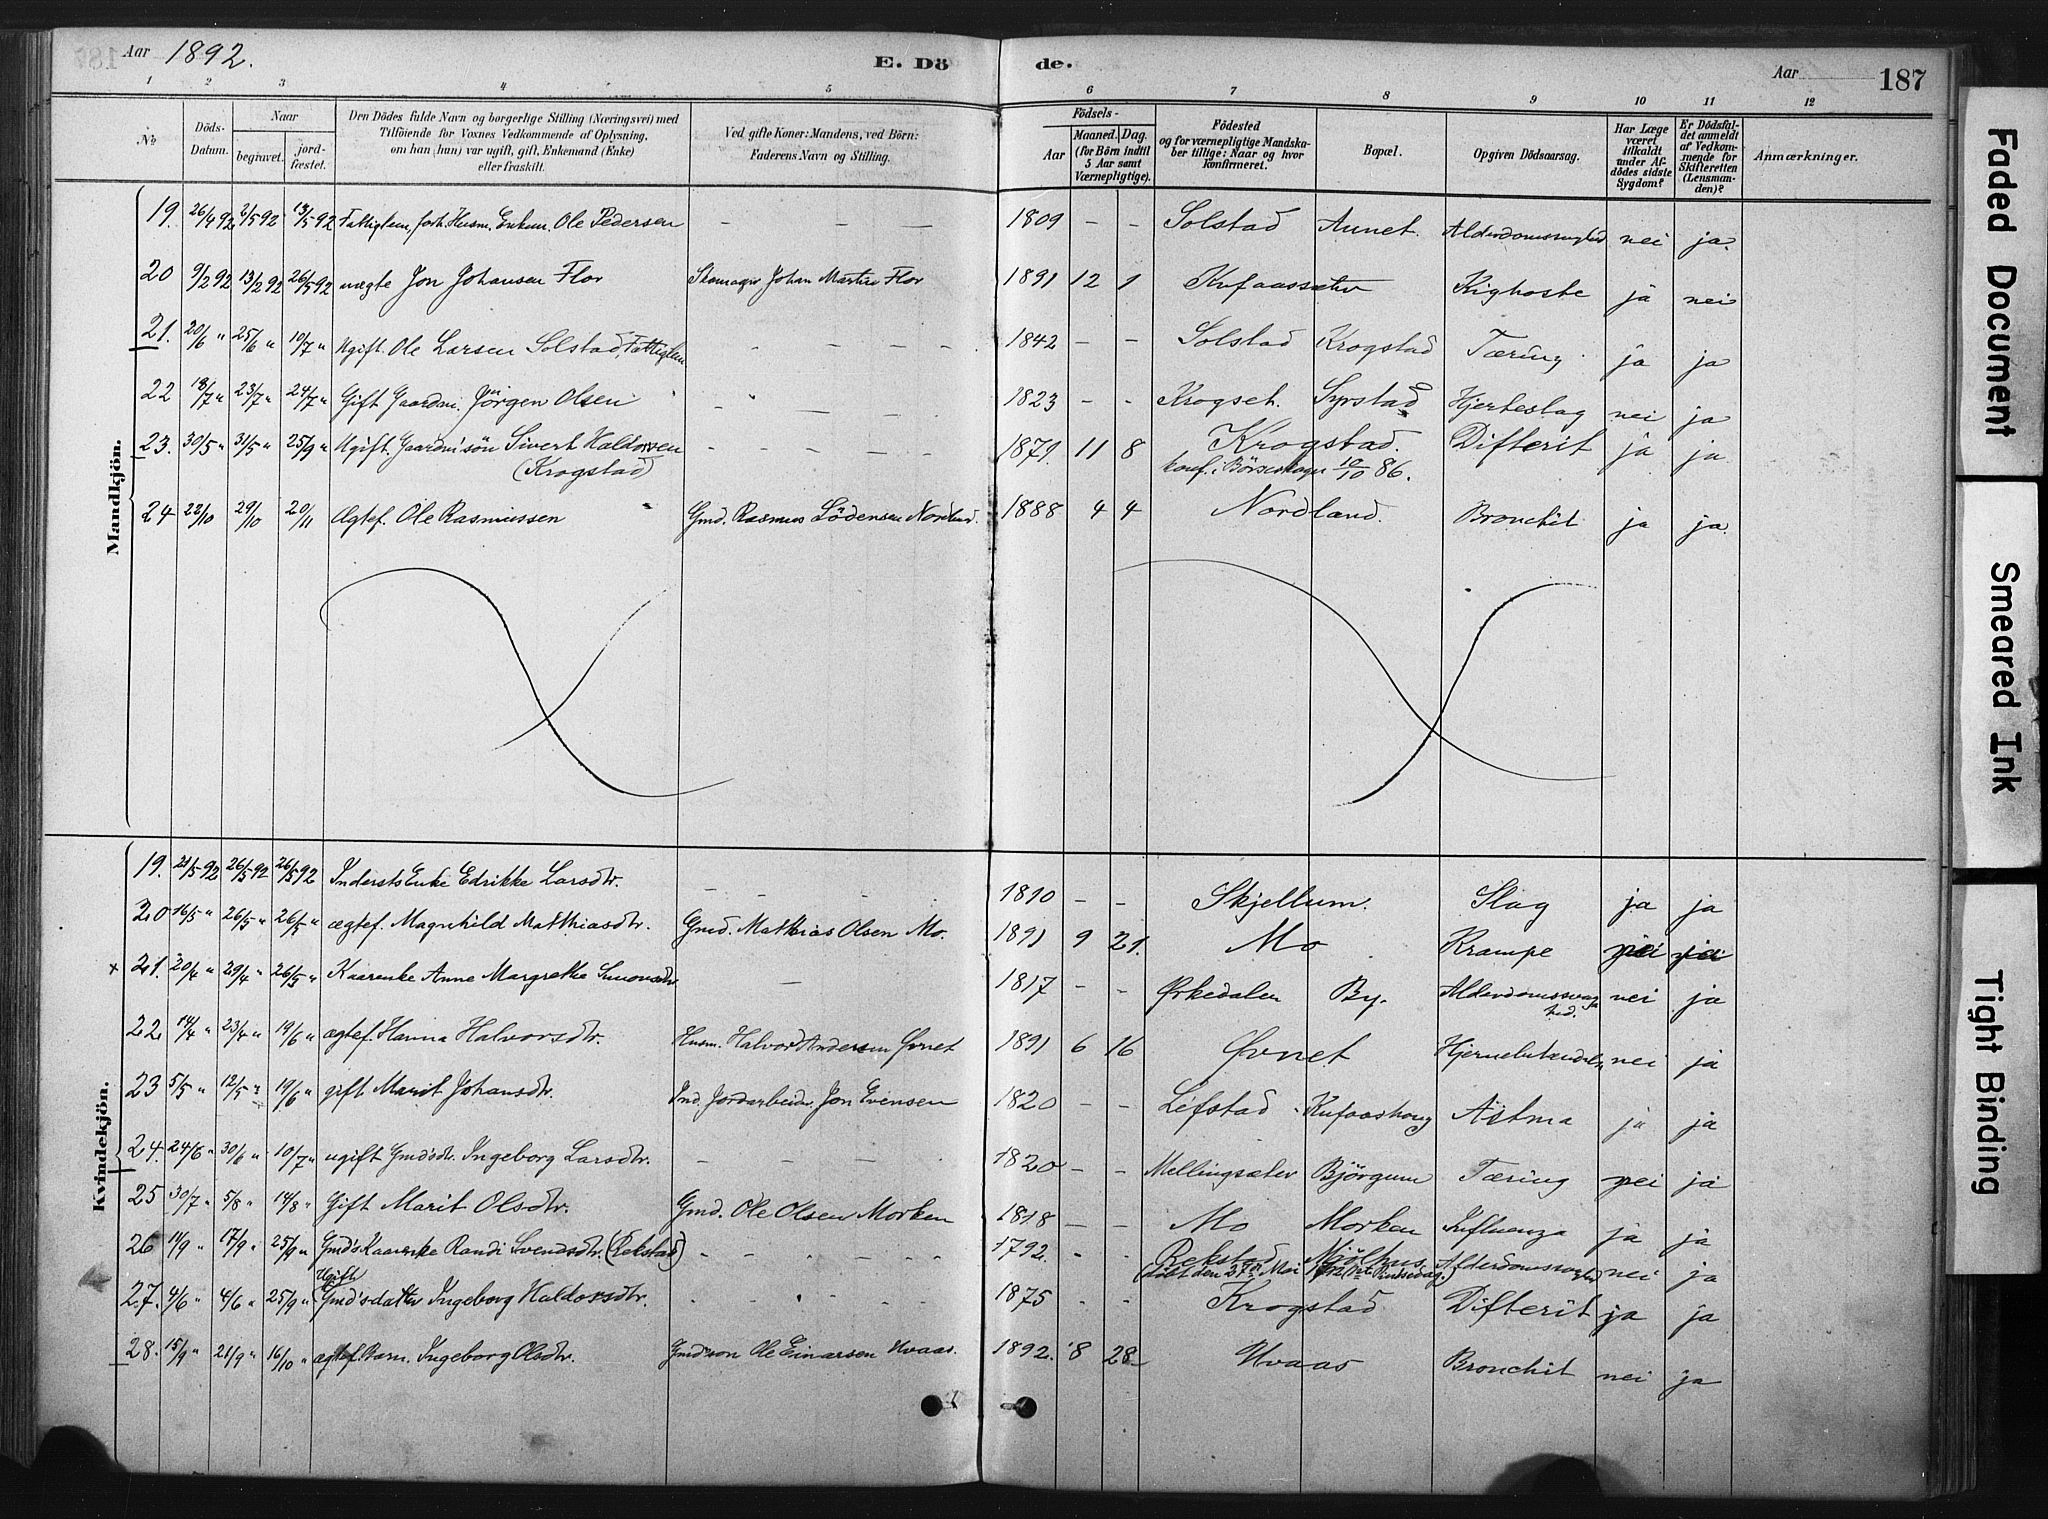 Aar 1892.
E. Dö
de.
Aar
187
1 2 3 4 5
6 7 8 9 10 11 12
No.
Döds-Datum.
Naar
begravet.
jordfæstet.
Den Dödes fulde Navn og borgerlige Stilling (Næringsvei) med
Tilföiende for Voxnes Vedkommende af Oplysning,
om han (hun) var ugift, gift, Enkemand (Enke)
eller fraskilt.
Ved gifte Koner: Mandens, ved Börn:
Faderens Navn og Stilling.
Födsels-
Aar
Maaned. Dag.
(for Börn indtil
5 Aar samt
Værnepligtige).
Födested
og for værnepligtige Mandska-
ber tillige: Naar og hvor
konfirmeret.
Bopæl.
Opgiven Dödsaarsag.
Har Læge
været
tilkaldt
under Af-
dödes sidste
Sygdom?
Er Dödsfal-
det anmeldt
af Vedkom-
mende for
Skifteretten
(Lensman-
den)?
Anmærkninger.
Mandkjön.
19. 26/4 92 2/5 92 13/5 92 Fattiglem, forh. Husm. Enkem. Ole Pedersen — — — 1809 — — Solstad Aunet. nei ja.
20 9/2 92 13/2 92 26/5 92 ægte Jon Johansen Flor Skomager Johan Martin Flor 1891 12 1 Kufaassæter Kighoste ja nei
21. 20/6 " 25/6 " 10/7 " Ugift. Ole Larsen Solstad, Fattiglem - - — — 1842 — — Solstad Krogstad Tæring ja ja
22 18/7 " 23/7 " 24/7 " Gift Gaardm. Jörgen Olsen - - — — 1823 - - Krogset. Syrstad Hjerteslag nei ja
23. 30/5 " 31/5 " 25/9 " Ugift. Gaardm.'sön Sivert Haldorsen - - - - 1871. 11 8 Krogstad. Difterit ja ja
(Krogstad)
konf. i Börseskogn 10/10 86.
24 22/10 29/10 20/11 Ægtef. Ole Rasmussen Gmd. Rasmus Nordland. 1888 4 4 Nordland. Bronchit ja ja.
Kvindekjön.
19. 21/5 92 26/5 92 26/5 92 Indersts Enke Edrikke Larsdtr. — — — 1810 - - Skjellum. Slag ja ja
20 16/5 " 26/5 " 26/5 " ægtef. Magnhild Matthiasdtr. Gmd. Mathias Olsen Mo. 1891 9 21. Mo Krampe nei ja
x 21. 20/4 " 29/4 " 26/5 " Kaarenke Anne Margrethe Simonsdtr — 1817 - - Ørkedalen By. Alderdomssvag- nei ja
hed.
22. 14/4 " 23/4 " 19/6 " ægtef. Hanna Halvorsdtr. Husm. Halvor Andersen Øvnet 1891 6 16 Øvnet nei ja
23 5/5 " 12/5 " 19/6 " gift Marit Johansdtr. Ind. Jordarbeider Jon Evensen 1820 - - Lefstad Kufaashaug Astma ja ja
24. 24/6 " 30/6 " 10/7 " ugift Gmd'sdtr. Ingeborg Larsdtr. — — — — 1820 — - Mellingsæter Björgum Tæring nei ja
25 30/7 " 5/8 " 14/8 " Gift Marit Olsdtr. Gmd. Ole Olsen Morken 1818 — — Mo Morken Influenza ja ja
26 11/9 " 17/9 " 25/9 " Gmd's Kaarenke Randi Svendsdtr. (Rekstad) - - - - 1792. - - Rekstad Mjølhus Alderdomssvaghed nei ja
(döbt den 27de Mai Pindsedag.)
27. 4/6 " 4/6 " 25/9 " Ugift Gmd'sdatter Ingeborg Haldorsdtr. - - - - 1875 - - Krogstad Difterit ja ja
28. 15/9 " 21/9 " 16/10 " ægtef. Barn. Ingeborg Olsdtr. Gmd'sön Ole Einarsen Hvaas. 1892. 8 28 Hvaas Bronchit nei ja
Faded Document
Smeared Ink
Tight Binding